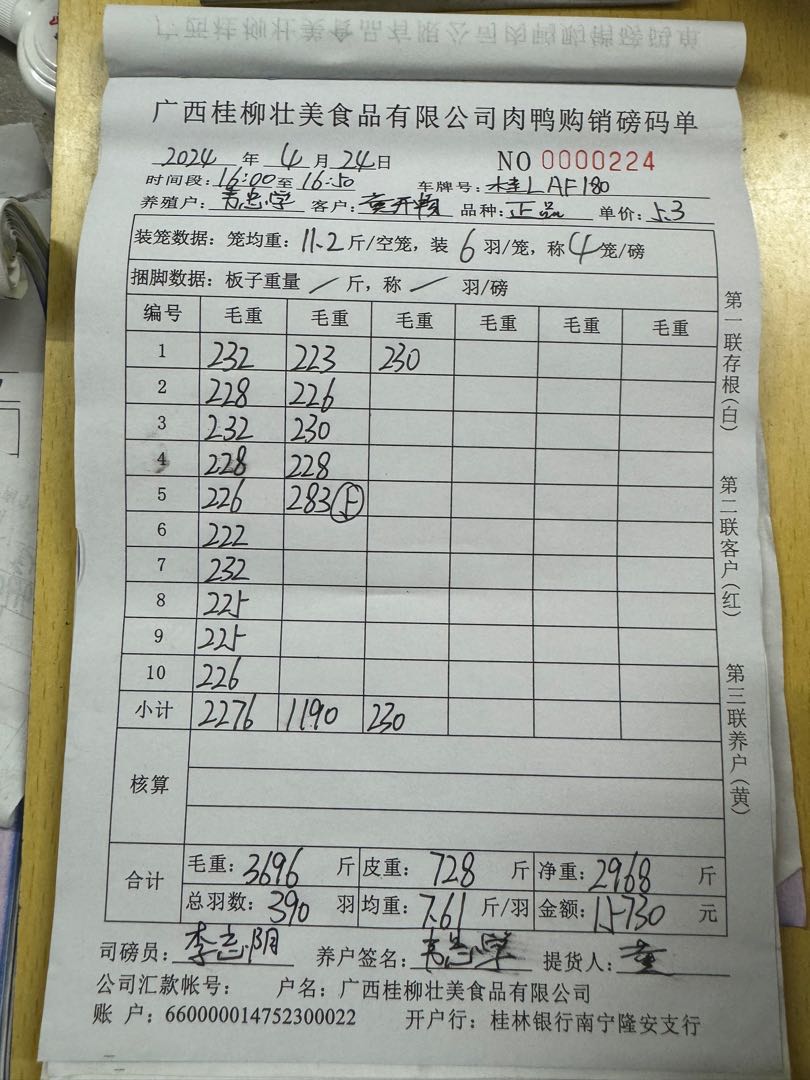 广西桂柳壮美食品有限公司肉鸭购销磅码单
2024 年 4 月 24 日 NO 0000224
时间段：16:00 至 16:50 车牌号：桂LAF180
养殖户：韦忠学 客户： 品种：正品 单价：5.3
装笼数据：笼均重：11.2 斤/空笼，装 6 羽/笼，称 4 笼/磅
捆脚数据：板子重量 / 斤，称 / 羽/磅
编号 毛重 毛重 毛重 毛重 毛重 毛重
1 232 223 230
2 228 226
3 232 230
4 228 228
5 226 283 ⑤
6 222
7 232
8 225
9 225
10 226
小计 2276 1190 230
核算
合计 毛重：3696 斤 皮重：728 斤 净重：2968 斤
总羽数：390 羽 均重：7.61 斤/羽 金额：15730 元
司磅员：李志阴 养户签名：韦忠学 提货人：童
公司汇款帐号： 户名：广西桂柳壮美食品有限公司
账 户：660000014752300022 开户行：桂林银行南宁隆安支行
第一联存根(白)
第二联客户(红)
第三联养户(黄)